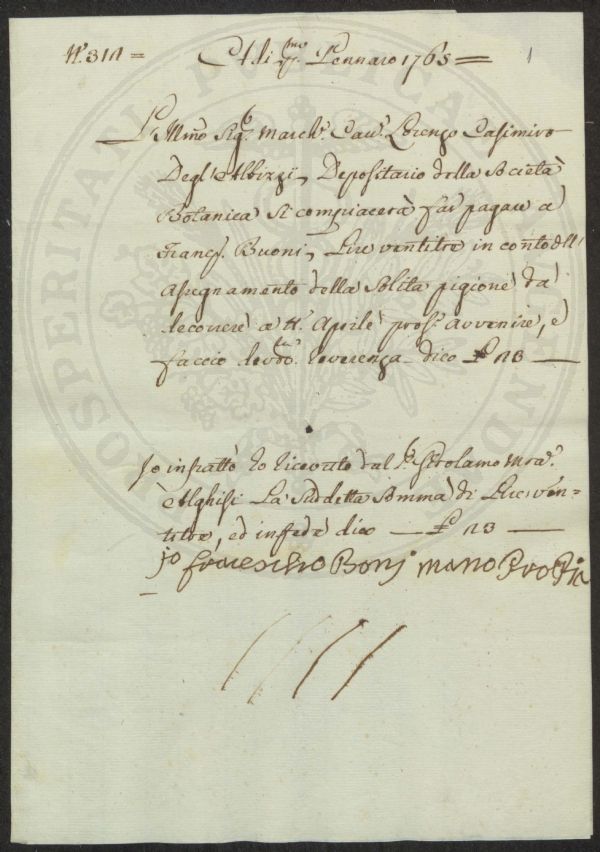 N.° 312 = Adi p.mo Gennaro 1763 = 1
L'Illmo Sig.e March.e Cav.e Lorenzo Casimiro
Degl'Albizzi, Depositario della Società
Botanica si compiacerà far pagare a
Franc.o Buoni, Lire ventitre in conto dell'
Assegnamento della solita pigione da
decorrere a tt.o Aprile pross.o avvenire, e
faccio devot.ma reverenza dico £ 23 —
Io infratto ho ricevuto dal S.e Girolamo Mra.
Alghisi La suddetta somma di Lire ven-
titre, ed in fede dico — £ 23 —
Io francescho Bonj mano Propia
PROSPERITATI PUBLICAE